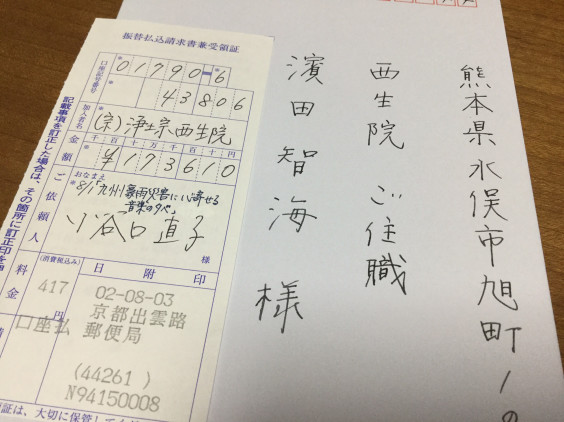 振替払込請求書兼受領証
口座記号番号
01790-6
43806
加入者名
(宗)浄土宗西生院
金額
千 百 十 万 千 百 十 円
¥173610
ご依頼人
おなまえ
8/1「九州豪雨災害に心寄せる
音楽の夕べ」
谷口直子
様
(消費税込み)
料金
417
円
口座払
日附印
02-08-03
京都出雲路
郵便局
(44261 )
N94150008
記載事項を訂正した場合は、その箇所に訂正印を押
証は、大切に保管して
熊本県水俣市旭町1の
西生院 ご住職
濱田智海 様